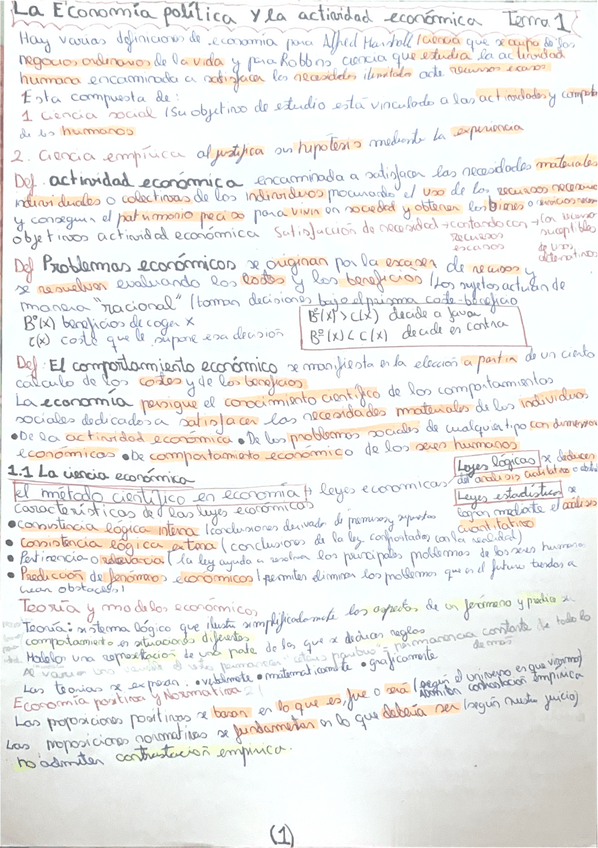 La Economía política y la actividad económica Tema 1
Hay varias definiciones de economía para Alfred Marshall (ciencia que se ocupa de los
negocios ordinarios de la vida y para Robbins ciencia que estudia la actividad
humana encaminada a satisfacer las necesidades ilimitadas ante recursos escasos
Esta compuesta de:
1 ciencia social (Su objetivo de estudio está vinculado a las actividades y
de los humanos
2. Ciencia empírica al justifica sus hipótesis mediante la experiencia
Def. actividad económica encaminada a satisfacer las necesidades materiales
individuales o colectivas de los individuos procurando el uso de los recursos necesarios
y conseguir el patrimonio preciso para vivir en sociedad y obtener los bienes o
objetivos actividad económica Satisfacción de necesidad → contando con →
recursos susceptibles
escasos de usos
alternativos
Def Problemas económicos se originan por la escasez de recursos y
se resuelven evaluando los costos y los beneficios (Los sujetos actúan de
manera "racional" (toman decisiones bajo el prisma coste-beneficio
Bº(x) beneficios de coger x
c(x) coste que le supone esa decisión
Bº(x) > c(x) decide a favor
Bº(x) < c(x) decide en contra
Def: El comportamiento económico se manifiesta en la elección a partir de un cierto
cálculo de los costes y de los beneficios
La economía persigue el conocimiento científico de los comportamientos
sociales dedicados a satisfacer las necesidades materiales de los individuos
• De la actividad económica • De los problemas sociales de cualquier tipo con dimension
económicos • De comportamiento económico de los seres humanos
1.1 La ciencia económica
el método científico en economía → leyes economicas
Leyes lógicas se deducen
del análisis cualitativo
Leyes estadísticas se
logran mediante el análisis
cuantitativo
características de las leyes económicas
• consistencia lógica interna (conclusiones derivado de premisas y supuestos
• consistencia lógica externa (conclusiones de la ley confrontados con la realidad)
• Pertinencia o relevancia (la ley ayuda a resolver los principales problemas de los seres humanos
• Predicción de fenómenos económicos (permiten eliminar los problemas que en el futuro tiendan a
crear obstaculos)
Teoría y modelos económicos
Teoría: sistema lógico que ilustra simplificadamente los aspectos de un fenómeno y predice su
comportamiento en situaciones diferentes
Modelo: una representación de una parte de la que se deducen reglas
Las teorías se expresan: • verbalmente • matematicamente • graficamente
Economía positiva y Normativa
Las proposiciones positivas se basan en lo que es, fue o será (según el universo en que vivimos)
Admiten contrastación empírica
Las proposiciones normativas se fundamentan en lo que debería ser (según nuestro juicio)
no admiten contrastación empírica.
(1)